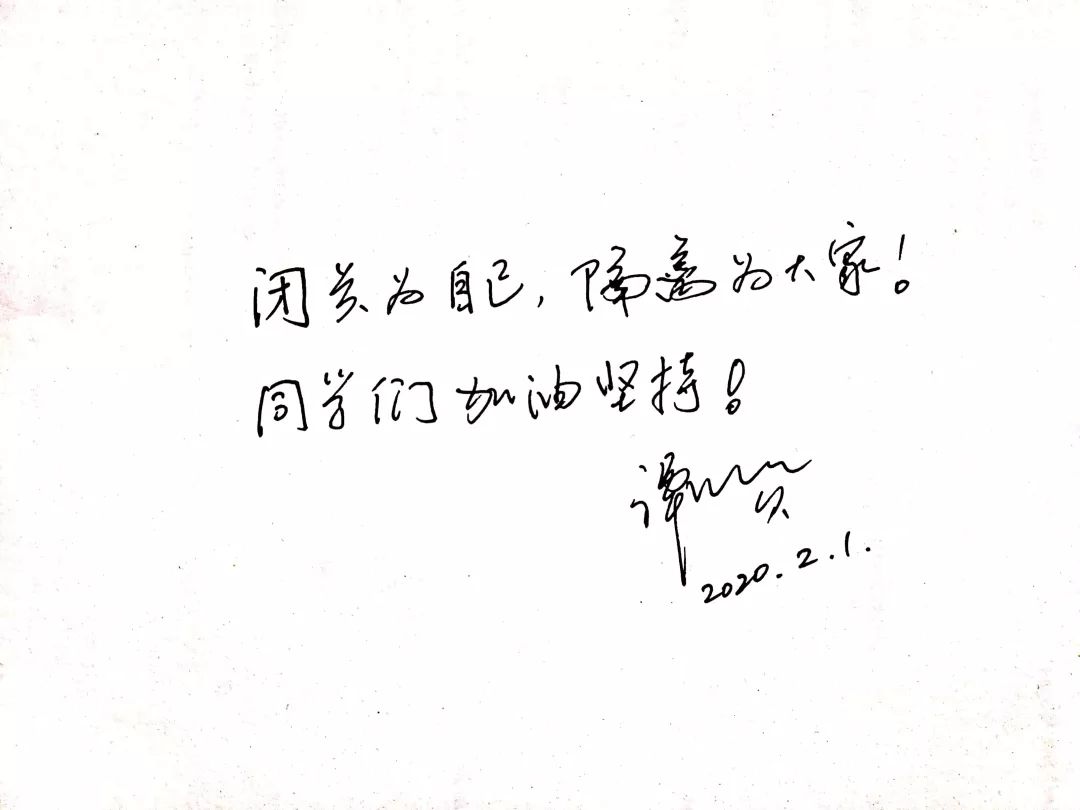 闭关为自己，隔离为大家！
同学们加油坚持！
谭
2020.2.1.